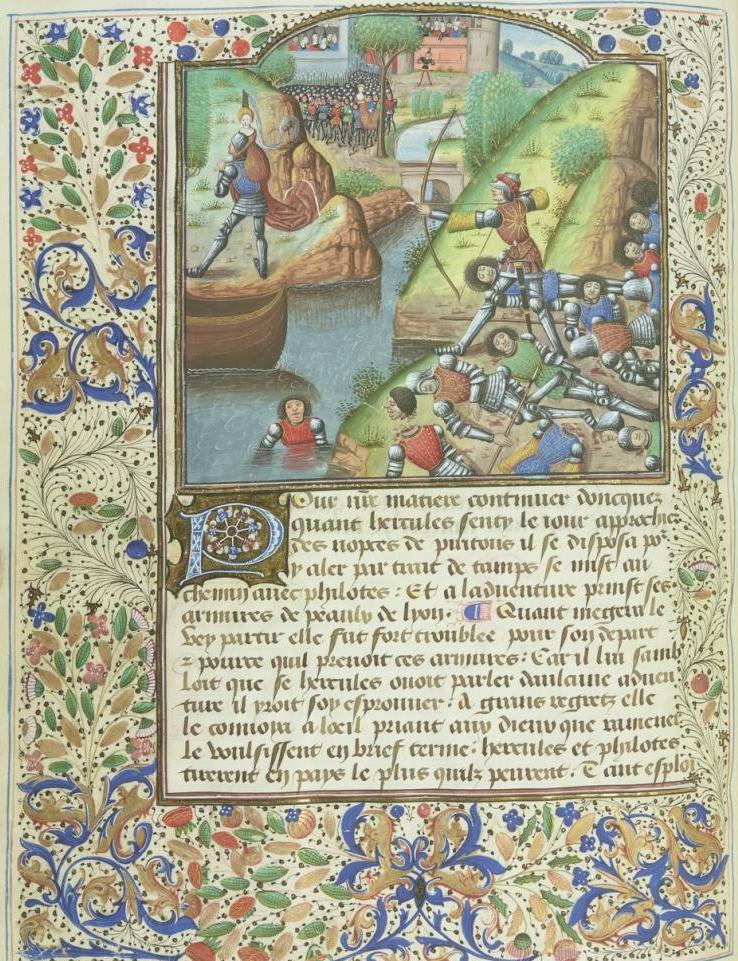 Pour nr̄e matiere continuer doncquez
quant hercules senty le iour approchier
des nopces de piritons il se disposa po͛
y aler par trait de tamps se mist au
chemin auec philotes : Et a ladventure prinst ses
armures de peaulx de lyon . Quant megera le
vey partir elle fut fort troublee pour son depart
⁊ pource quil prenoit ces armures : Car il lui samb
loit que se hercules ouoit parler daulcune aduen
ture il yroit soy esprouuer . A grans regretz elle
le conuoya a loeil priant aux dieux que ramener
le voulsissent en brief terme . hercules et philotes
tirerent en pays le plus quilz peurent . Tant esploi